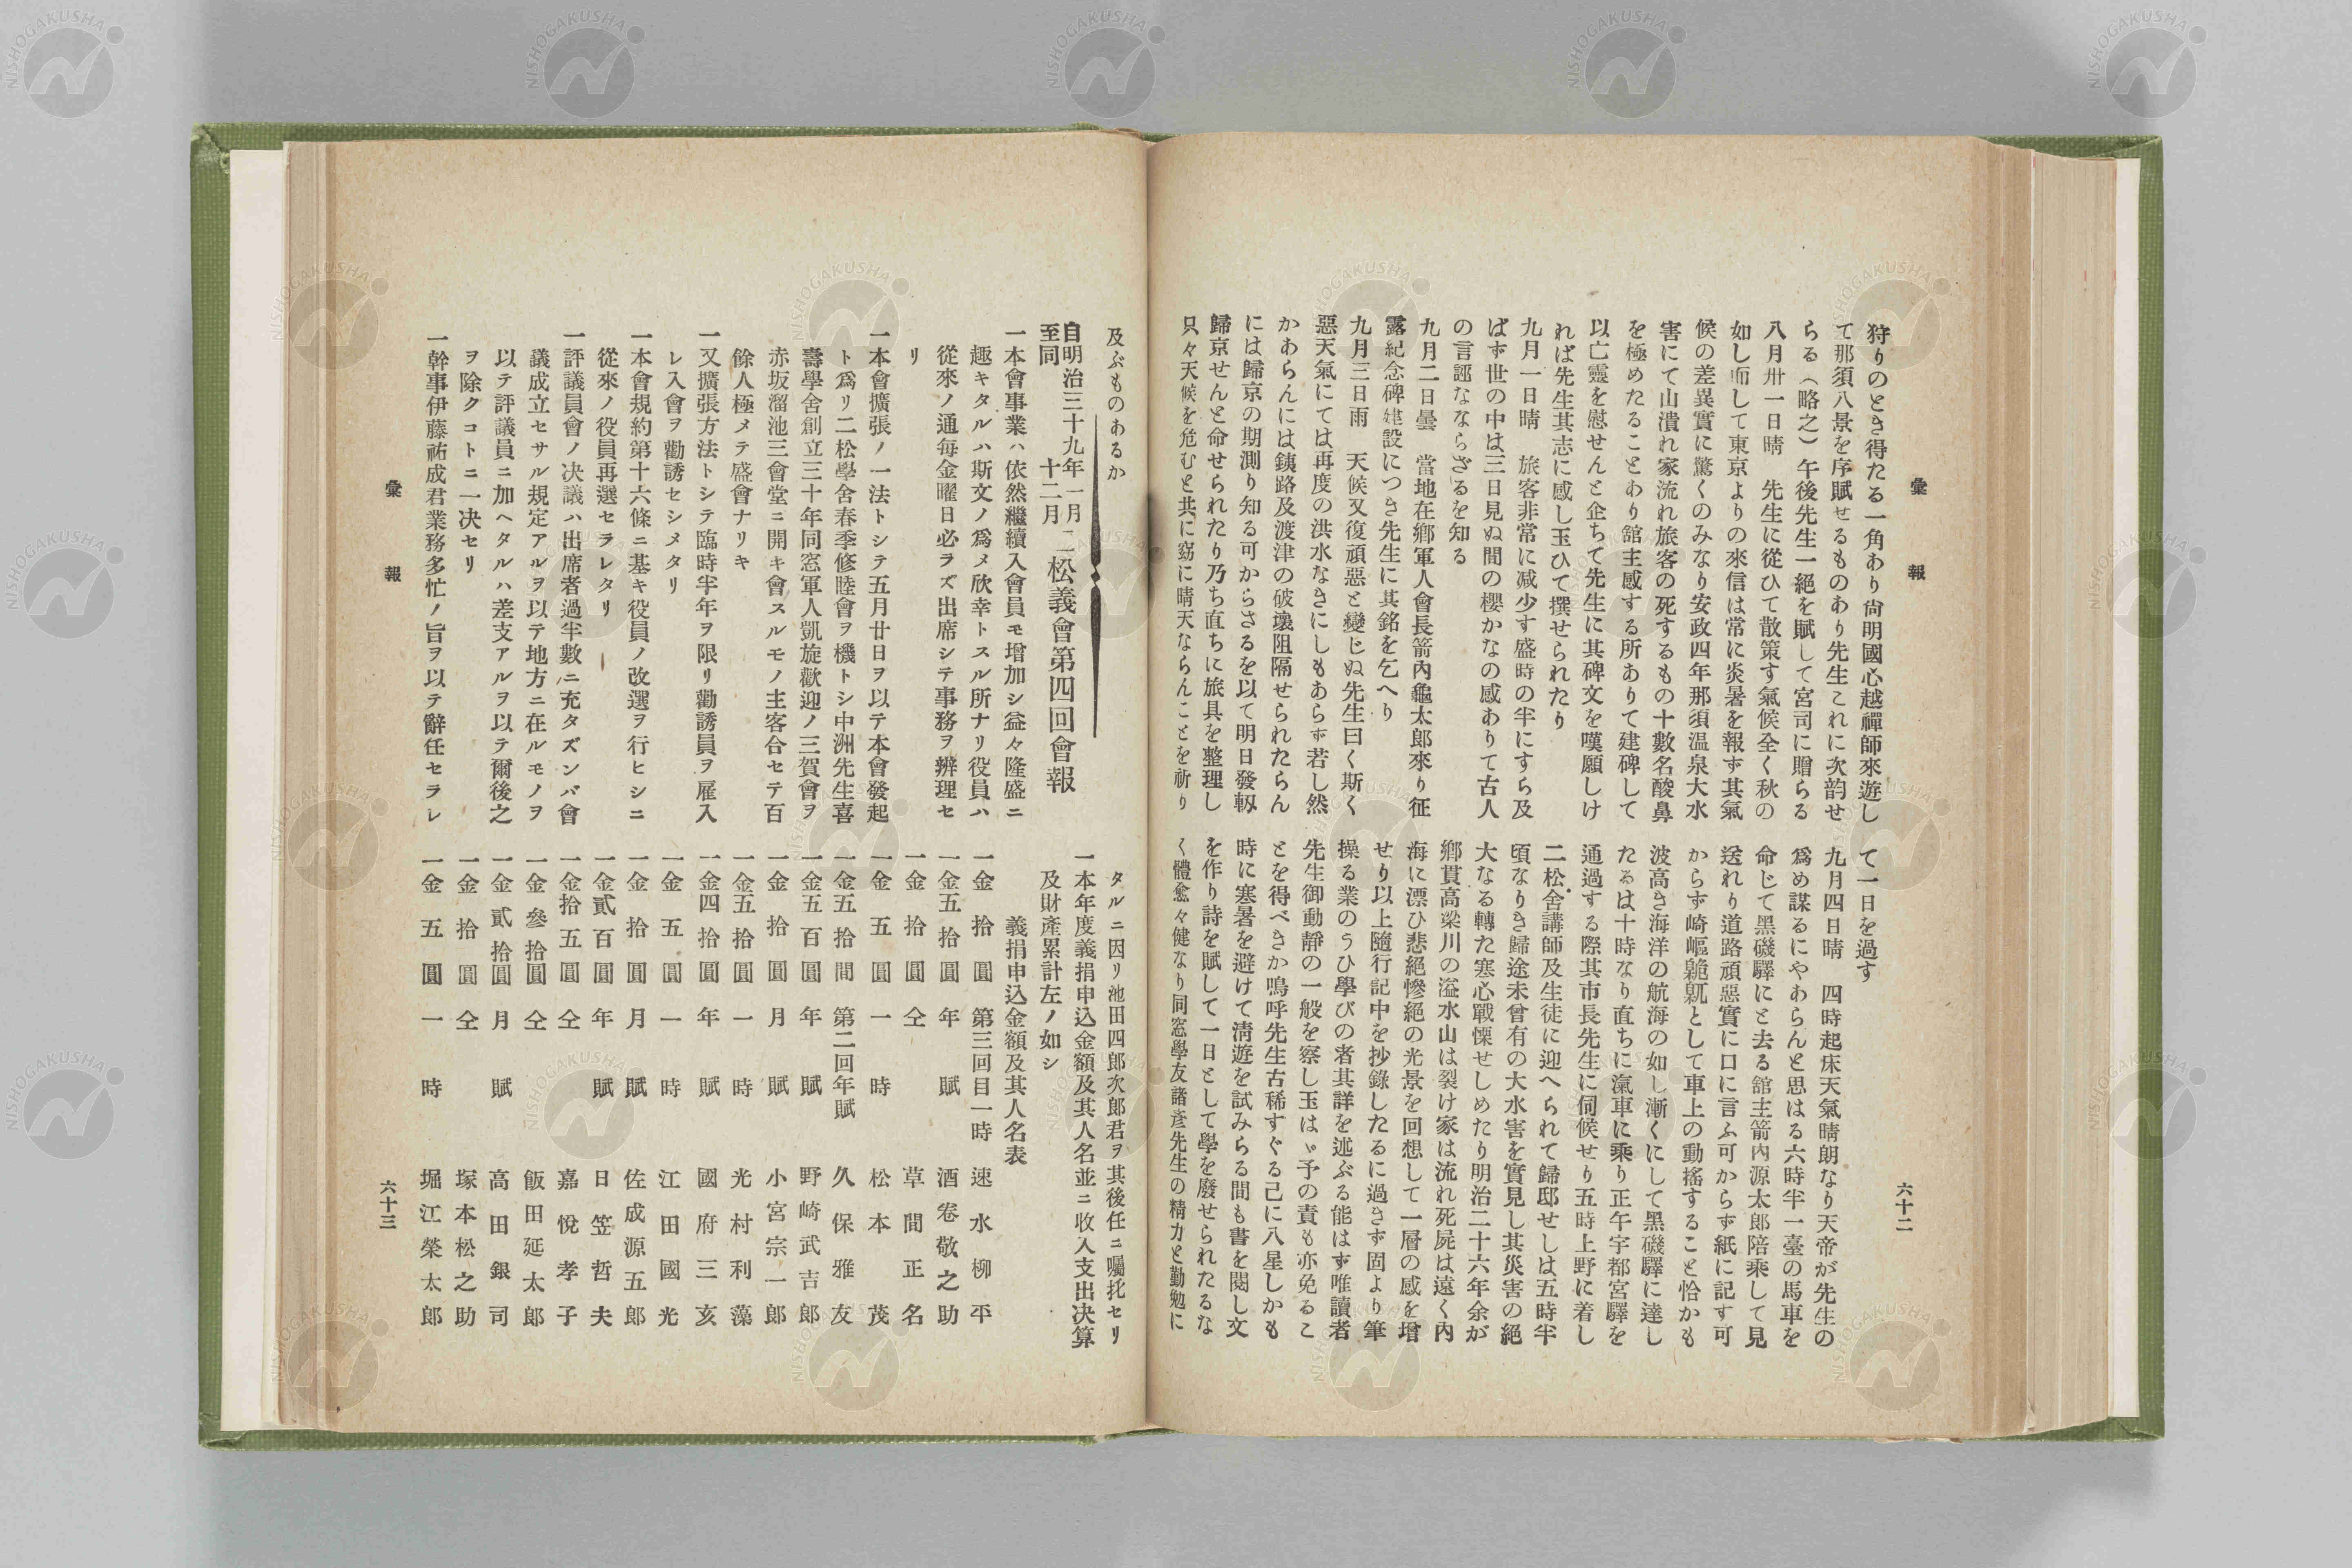 彙報
六十二
狩りのとき得たる一角あり尙明國心越禪師來遊し
て那須八景を序賦せるものあり先生これに次韵せ
らる（略之）午後先生一絕を賦して宮司に贈らる
八月卅一日晴　先生に從ひて散策す氣候全く秋の
如し而して東京よりの來信は常に炎暑を報ず其氣
候の差異實に驚くのみなり安政四年那須温泉大水
害にて山潰れ家流れ旅客の死するもの十數名酸鼻
を極めたることあり館主感する所ありて建碑して
以亡靈を慰せんと企ちて先生に其碑文を嘆願しけ
れば先生其志に感し玉ひて撰せられたり
九月一日晴　旅客非常に減少す盛時の半にすら及
ばず世の中は三日見ぬ間の櫻かなの感ありて古人
の言誣なならざるを知る
九月二日曇　當地在鄕軍人會長箭內龜太郎來り征
露紀念碑建設につき先生に其銘を乞へり
九月三日雨　天候又復頑惡と變じぬ先生曰く斯く
惡天氣にては再度の洪水なきにしもあらず若し然
かあらんには銕路及渡津の破壞阻隔せられたらん
には歸京の期測り知る可からさるを以て明日發軔
歸京せんと命せられたり乃ち直ちに旅具を整理し
只々天候を危むと共に窈に晴天ならんことを祈り
て一日を過す
九月四日晴　四時起床天氣晴朗なり天帝が先生の
爲め謀るにやあらんと思はる六時半一臺の馬車を
命じて黑磯驛にと去る館主箭內源太郎陪乘して見
送れり道路頑惡實に口に言ふ可からず紙に記す可
からず崎嶇として車上の動搖すること恰かも
波高き海洋の航海の如し漸くにして黑磯驛に達し
たるは十時なり直ちに滊車に乘り正午宇都宮驛を
通過する際其市長先生に伺候せり五時上野に着し
二松舍講師及生徒に迎へられて歸邸せしは五時半
頃なりき歸途未曾有の大水害を實見し其災害の絕
大なる轉た寒心戰慄せしめたり明治二十六年余が
鄕貫高梁川の溢水山は裂け家は流れ死屍は遠く內
海に漂ひ悲絕慘絕の光景を回想して一層の感を增
せり以上隨行記中を抄錄したるに過きず固より筆
操る業のうひ學びの者其詳を述ぶる能はず唯讀者
先生御動靜の一般を察し玉はゞ予の責も亦免るこ
とを得べきか嗚呼先生古稀すぐる己に八星しかも
時に寒暑を避けて淸遊を試みらる間も書を閱し文
を作り詩を賦して一日として學を廢せられたるな
く體愈々健なり同窓學友諸彥先生の精力と勤勉に
及ぶものあるか
自明治三十九年一月
至同　　　　十二月
二松義會第四回會報
一本會事業ハ依然繼續入會員モ增加シ益々隆盛ニ
趣キタルハ斯文ノ爲メ欣幸トスル所ナリ役員ハ
從來ノ通每金曜日必ラズ出席シテ事務ヲ辨理セ
リ
一本會擴張ノ一法トシテ五月廿日ヲ以テ本會發起
ト爲リ二松學舍春季修睦會ヲ機トシ中洲先生喜
壽學舍創立三十年同窓軍人凱旋歡迎ノ三賀會ヲ
赤坂溜池三會堂ニ開キ會スルモノ主客合セテ百
餘人極メテ盛會ナリキ
一又擴張方法トシテ臨時半年ヲ限リ勸誘員ヲ雇入
レ入會ヲ勸誘セシメタリ
一本會規約第十六條ニ基キ役員ノ改選ヲ行ヒシニ
從來ノ役員再選セラレタリ
一評議員會ノ決議ハ出席者過半數ニ充タズンバ會
議成立セサル規定アルヲ以テ地方ニ在ルモノヲ
以テ評議員ニ加ヘタルハ差支アルヲ以テ爾後之
ヲ除クコトニ一決セリ
一幹事伊藤祐成君業務多忙ノ旨ヲ以テ辭任セラレ
タルニ因リ池田四郎次郎君ヲ其後任ニ囑托セリ
一本年度義捐申込金額及其人名並ニ收入支出決算
及財產累計左ノ如シ
義捐申込金額及其人名表
一金拾圓　第三回目一時　速水柳平
一金五拾圓　年賦　酒卷敬之助
一金拾圓　仝　草間正名
一金五圓　一時　松本茂
一金五拾間　第二回年賦　久保雅友
一金五百圓　年賦　野崎武吉郎
一金拾圓　月賦　小宮宗一郎
一金五拾圓　一時　光村利藻
一金四拾圓　年賦　國府三亥
一金五圓　一時　江田國光
一金拾圓　月賦　佐成源五郎
一金貳百圓　年賦　日笠哲夫
一金拾五圓　仝　嘉悅孝子
一金參拾圓　仝　飯田延太郎
一金貳拾圓　月賦　高田銀司
一金拾圓　仝　塚本松之助
一金五圓　一時　堀江榮太郎
彙報
六十三